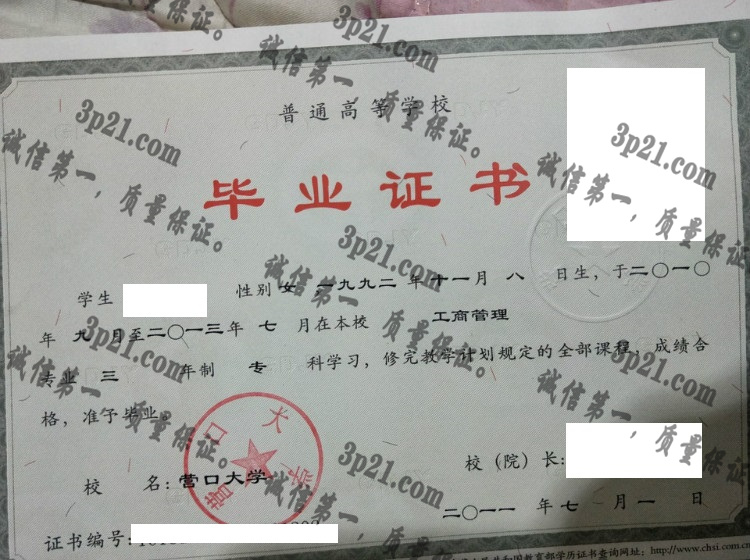 普通高等学校
毕业证书
学生 性别 女，一九九二 年 十一月 八 日生，于二〇一〇
年 九 月至二〇一三年 七 月在本校 工商管理
专业 三 年制 专 科学习，修完教学计划规定的全部课程，成绩合
格，准予毕业。
营口大学
校 名：营口大学
校（院）长：
二〇一一 年 七 月 一 日
证书编号：
共和国教育部学历证书查询网址：http://www.chsi.com.cn
3p21.com
诚信第一，质量保证。
3p21.com
诚信第一，质量保证。
3p21.com
诚信第一，质量保证。
3p21.com
诚信第一，质量保证。
3p21.com
诚信第一，质量保证。
3p21.com
诚信第一，质量保证。
3p21.com
诚信第一，质量保证。